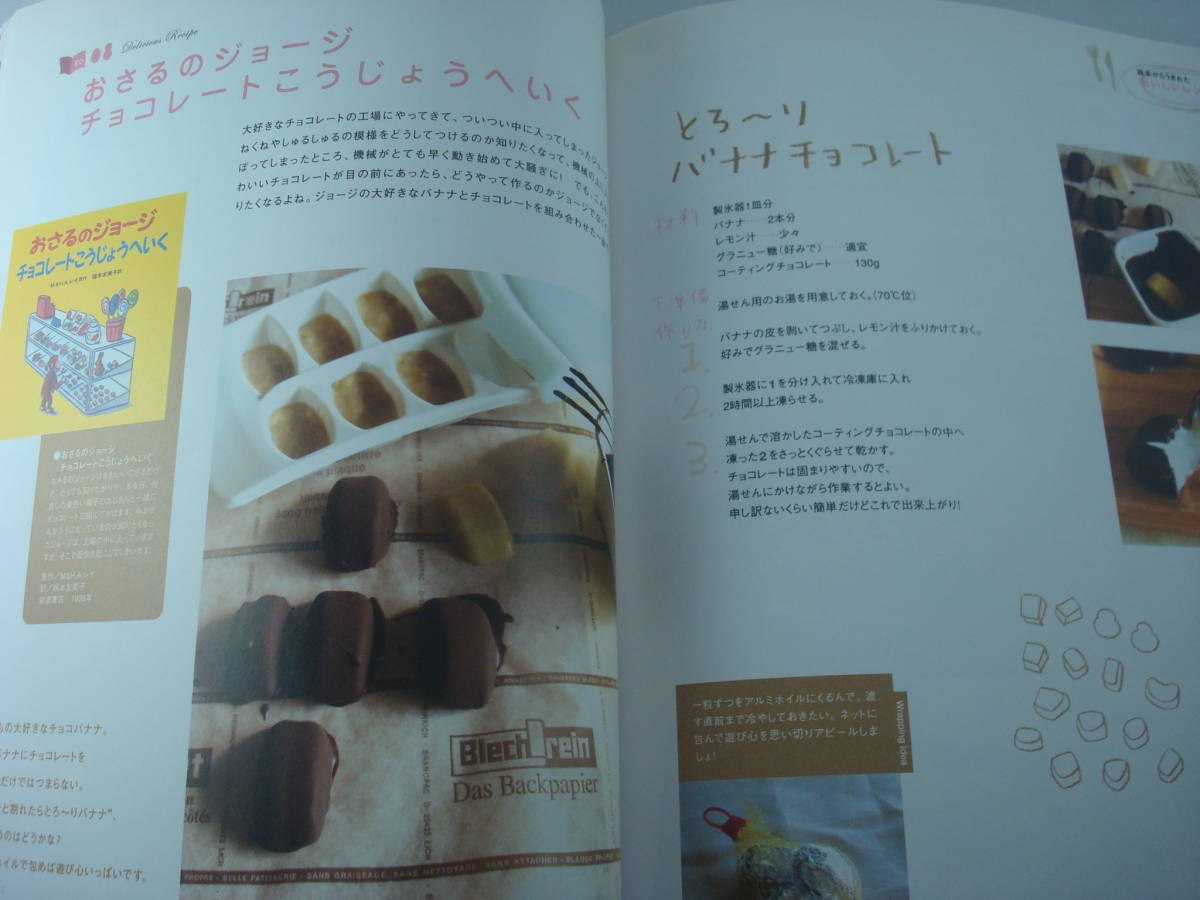 Delicious Recipe
おさるのジョージ
チョコレートこうじょうへいく
大好きなチョコレートの工場にやってきて、ついつい中に入ってしまったジョー
ねくねやしゅるしゅるの模様をどうしてつけるのか知りたくなって、機械の上に
ぼってしまったところ、機械がとても早く動き始めて大騒ぎに! でも、こんな
わいいチョコレートが目の前にあったら、どうやって作るのかジョージでなくて
りたくなるよね。ジョージの大好きなバナナとチョコレートを組み合わせた一品
おさるのジョージ
チョコレートこうじょうへいく
●おさるのジョージ
チョコレートこうじょうへいく
原作/M&H.A.レイ
1999年
もの大好きなチョコバナナ。
バナナにチョコレートを
だけではつまらない。
と割れたらとろ〜りバナナ"、
うのはどうかな?
ホイルで包めば遊び心いっぱいです。
Blechrein
Das Backpapier
PROPRE - BELLE PATISSERIE - SANS GRAISSAGE, SANS NETTOYAGE, SANS ATTACHER - PLAQUE PROPRE
絵本からうまれた
おいしいレシ
とろ〜り
バナナチョコレート
材料
製氷器1皿分
バナナ 2本分
レモン汁 少々
グラニュー糖(好みで) 適宜
コーティングチョコレート 130g
下準備
湯せん用のお湯を用意しておく。(70℃位)
作り方
1.
バナナの皮を剥いてつぶし、レモン汁をふりかけておく。
好みでグラニュー糖を混ぜる。
2.
製氷器に1を分け入れて冷凍庫に入れ
2時間以上凍らせる。
3.
湯せんで溶かしたコーティングチョコレートの中へ
凍った2をさっとくぐらせて乾かす。
チョコレートは固まりやすいので、
湯せんにかけながら作業するとよい。
申し訳ないくらい簡単だけどこれで出来上がり!
一粒ずつをアルミホイルにくるんで。渡
す直前まで冷やしておきたい。ネットに
包んで遊び心を思い切りアピールしま
しょ!
Wrapping Idea